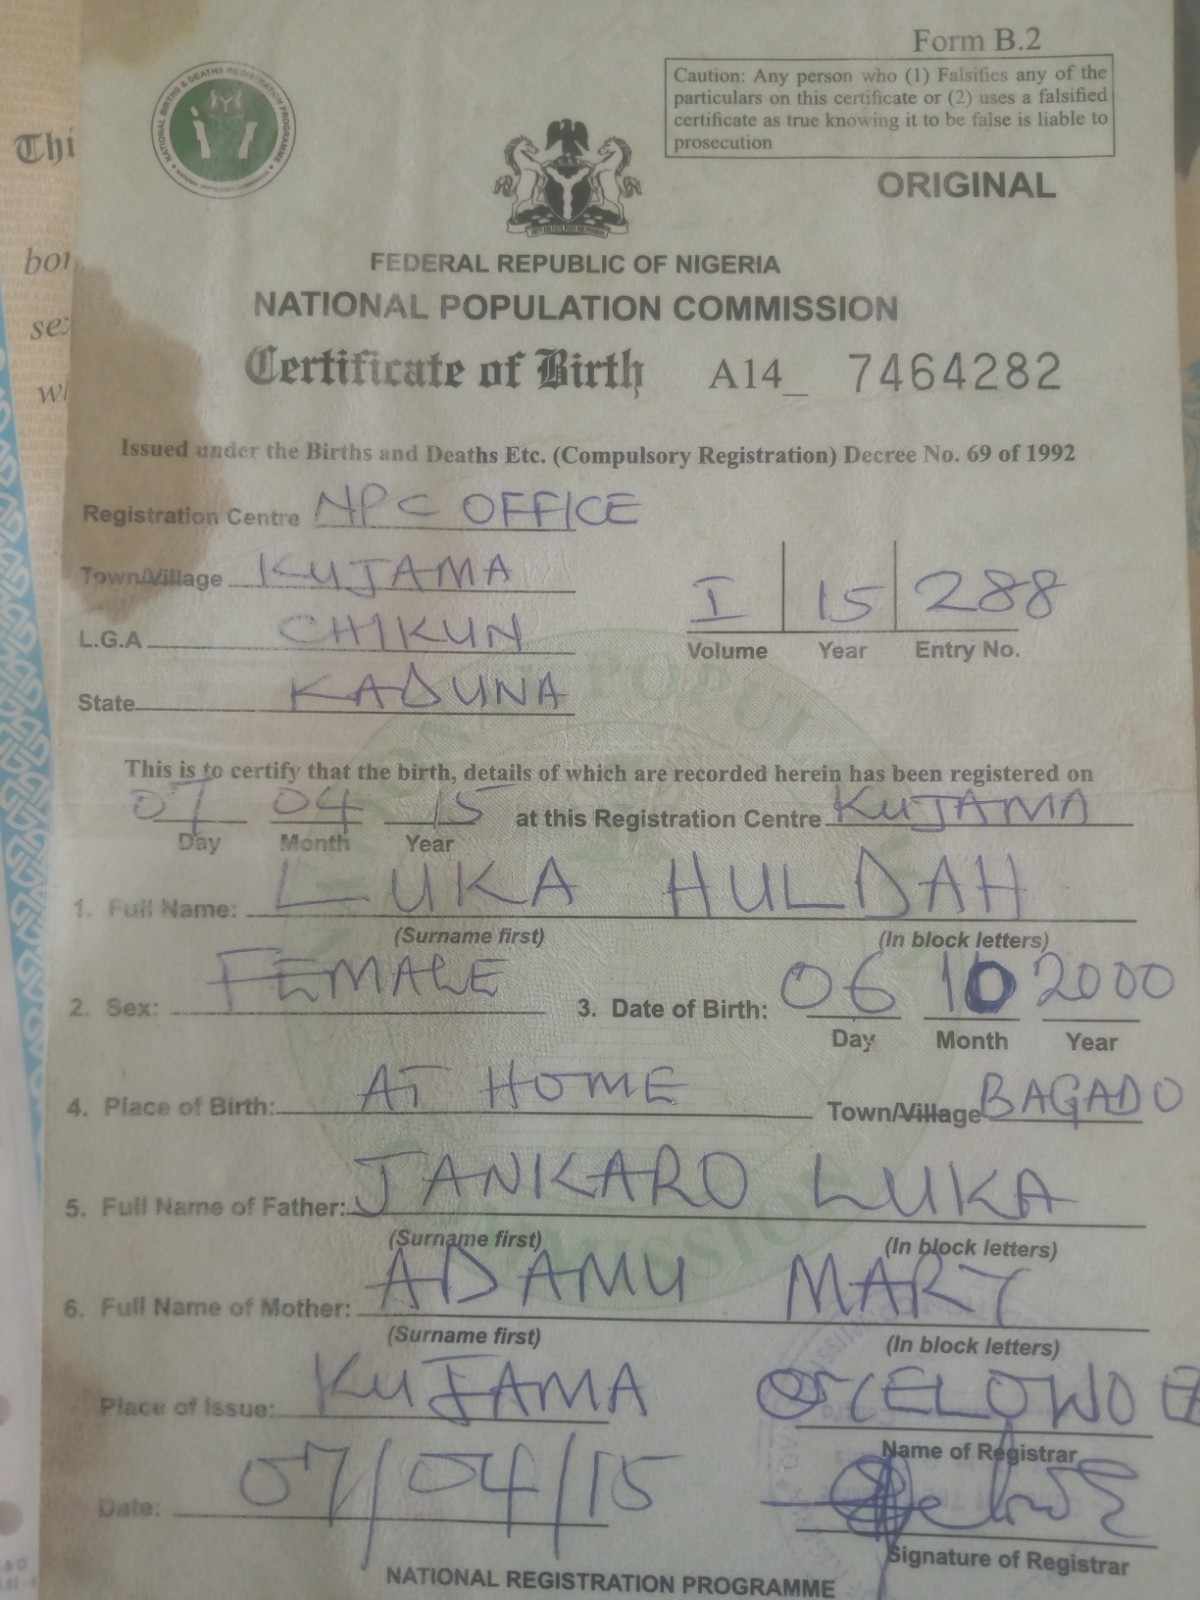 Form B.2
Caution: Any person who (1) Falsifies any of the
particulars on this certificate or (2) uses a falsified
certificate as true knowing it to be false is liable to
prosecution
NATIONAL BIRTHS & DEATHS REGISTRATION PROGRAMME
ORIGINAL
FEDERAL REPUBLIC OF NIGERIA
NATIONAL POPULATION COMMISSION
Certificate of Birth A14_ 7464282
Issued under the Births and Deaths Etc. (Compulsory Registration) Decree No. 69 of 1992
Registration Centre NPC OFFICE
Town/Village KUJAMA
L.G.A CHIKUN
State KADUNA
I 15 288
Volume Year Entry No.
This is to certify that the birth, details of which are recorded herein has been registered on
07 04 15 at this Registration Centre KUJAMA
Day Month Year
1. Full Name: LUKA HULDAH
(Surname first) (In block letters)
2. Sex: FEMALE 3. Date of Birth: 06 10 2000
Day Month Year
4. Place of Birth: AT HOME Town/Village BAGADO
5. Full Name of Father: JANKARO LUKA
(Surname first) (In block letters)
6. Full Name of Mother: ADAMU MARY
(Surname first) (In block letters)
Place of Issue: KUJAMA
Name of Registrar
Date: 07/04/15
Signature of Registrar
NATIONAL REGISTRATION PROGRAMME